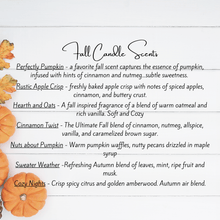 Fall Candle Scents
Perfectly Pumpkin - a favorite fall scent captures the essence of pumpkin,
infused with hints of cinnamon and nutmeg...subtle sweetness.
Rustic Apple Crisp - freshly baked apple crisp with notes of spiced apples,
cinnamon, and buttery crust.
Hearth and Oats - A fall inspired fragrance of a blend of warm oatmeal and
rich vanilla. Soft and Cozy
Cinnamon Twist - The Ultimate Fall blend of cinnamon, nutmeg, allspice,
vanilla, and caramelized brown sugar.
Nuts about Pumpkin - Warm pumpkin waffles, nutty pecans drizzled in maple
syrup
Sweater Weather -Refreshing Autumn blend of leaves, mint, ripe fruit and
musk.
Cozy Nights - Crisp spicy citrus and golden amberwood. Autumn air blend.